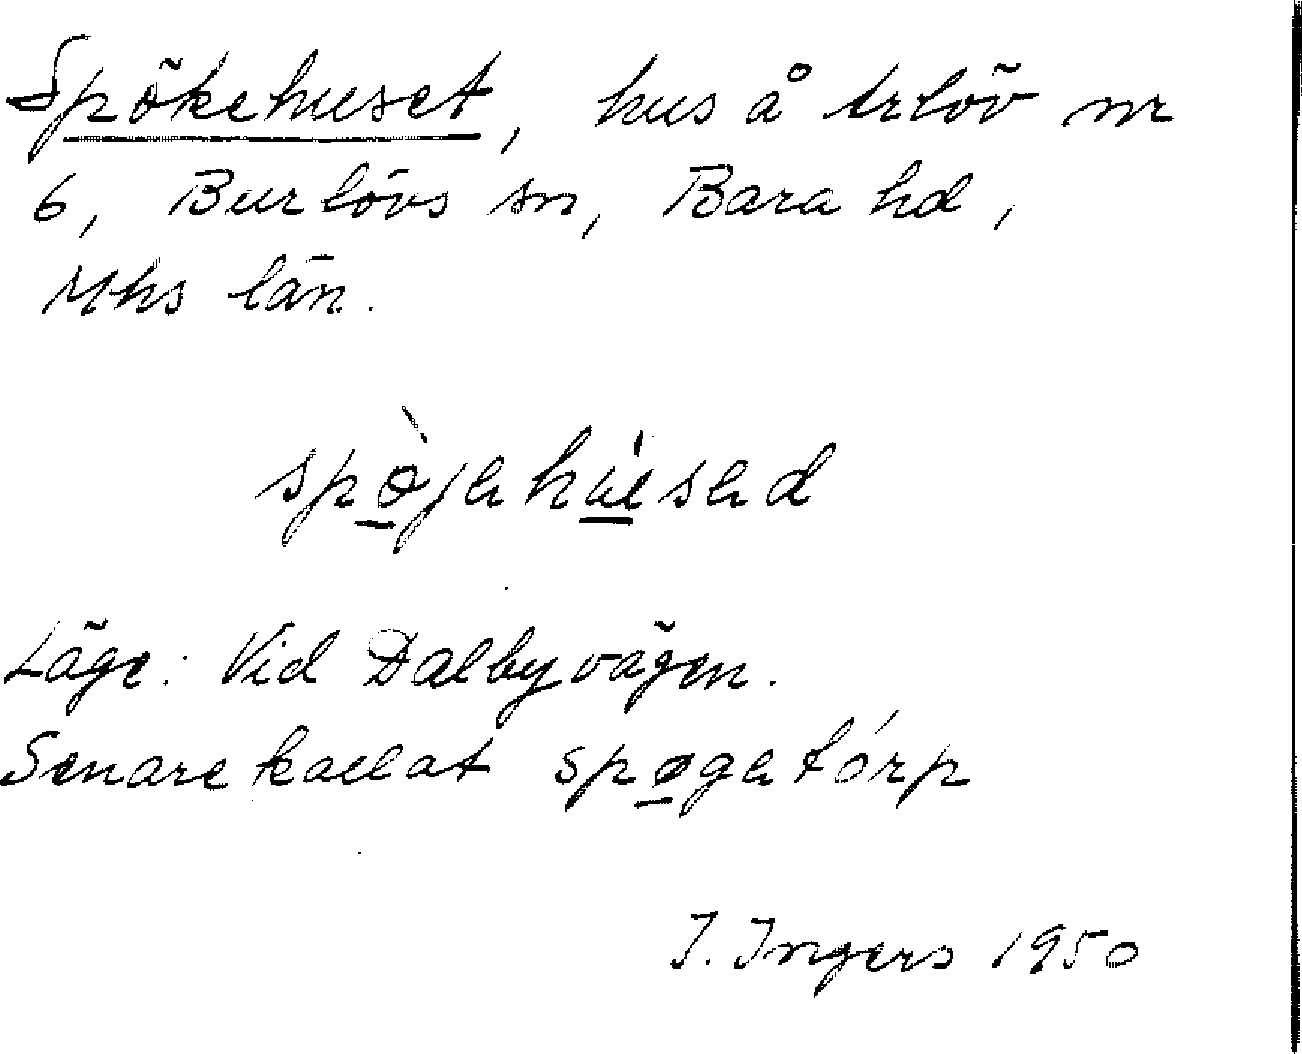 Spökehuset, hus å Arlöv nr
6, Burlövs sn, Bara hd,
Mhs län.
Läge: Vid Dalbyvägen.
Senare kallat spøgatórp
I. Ingers 1950